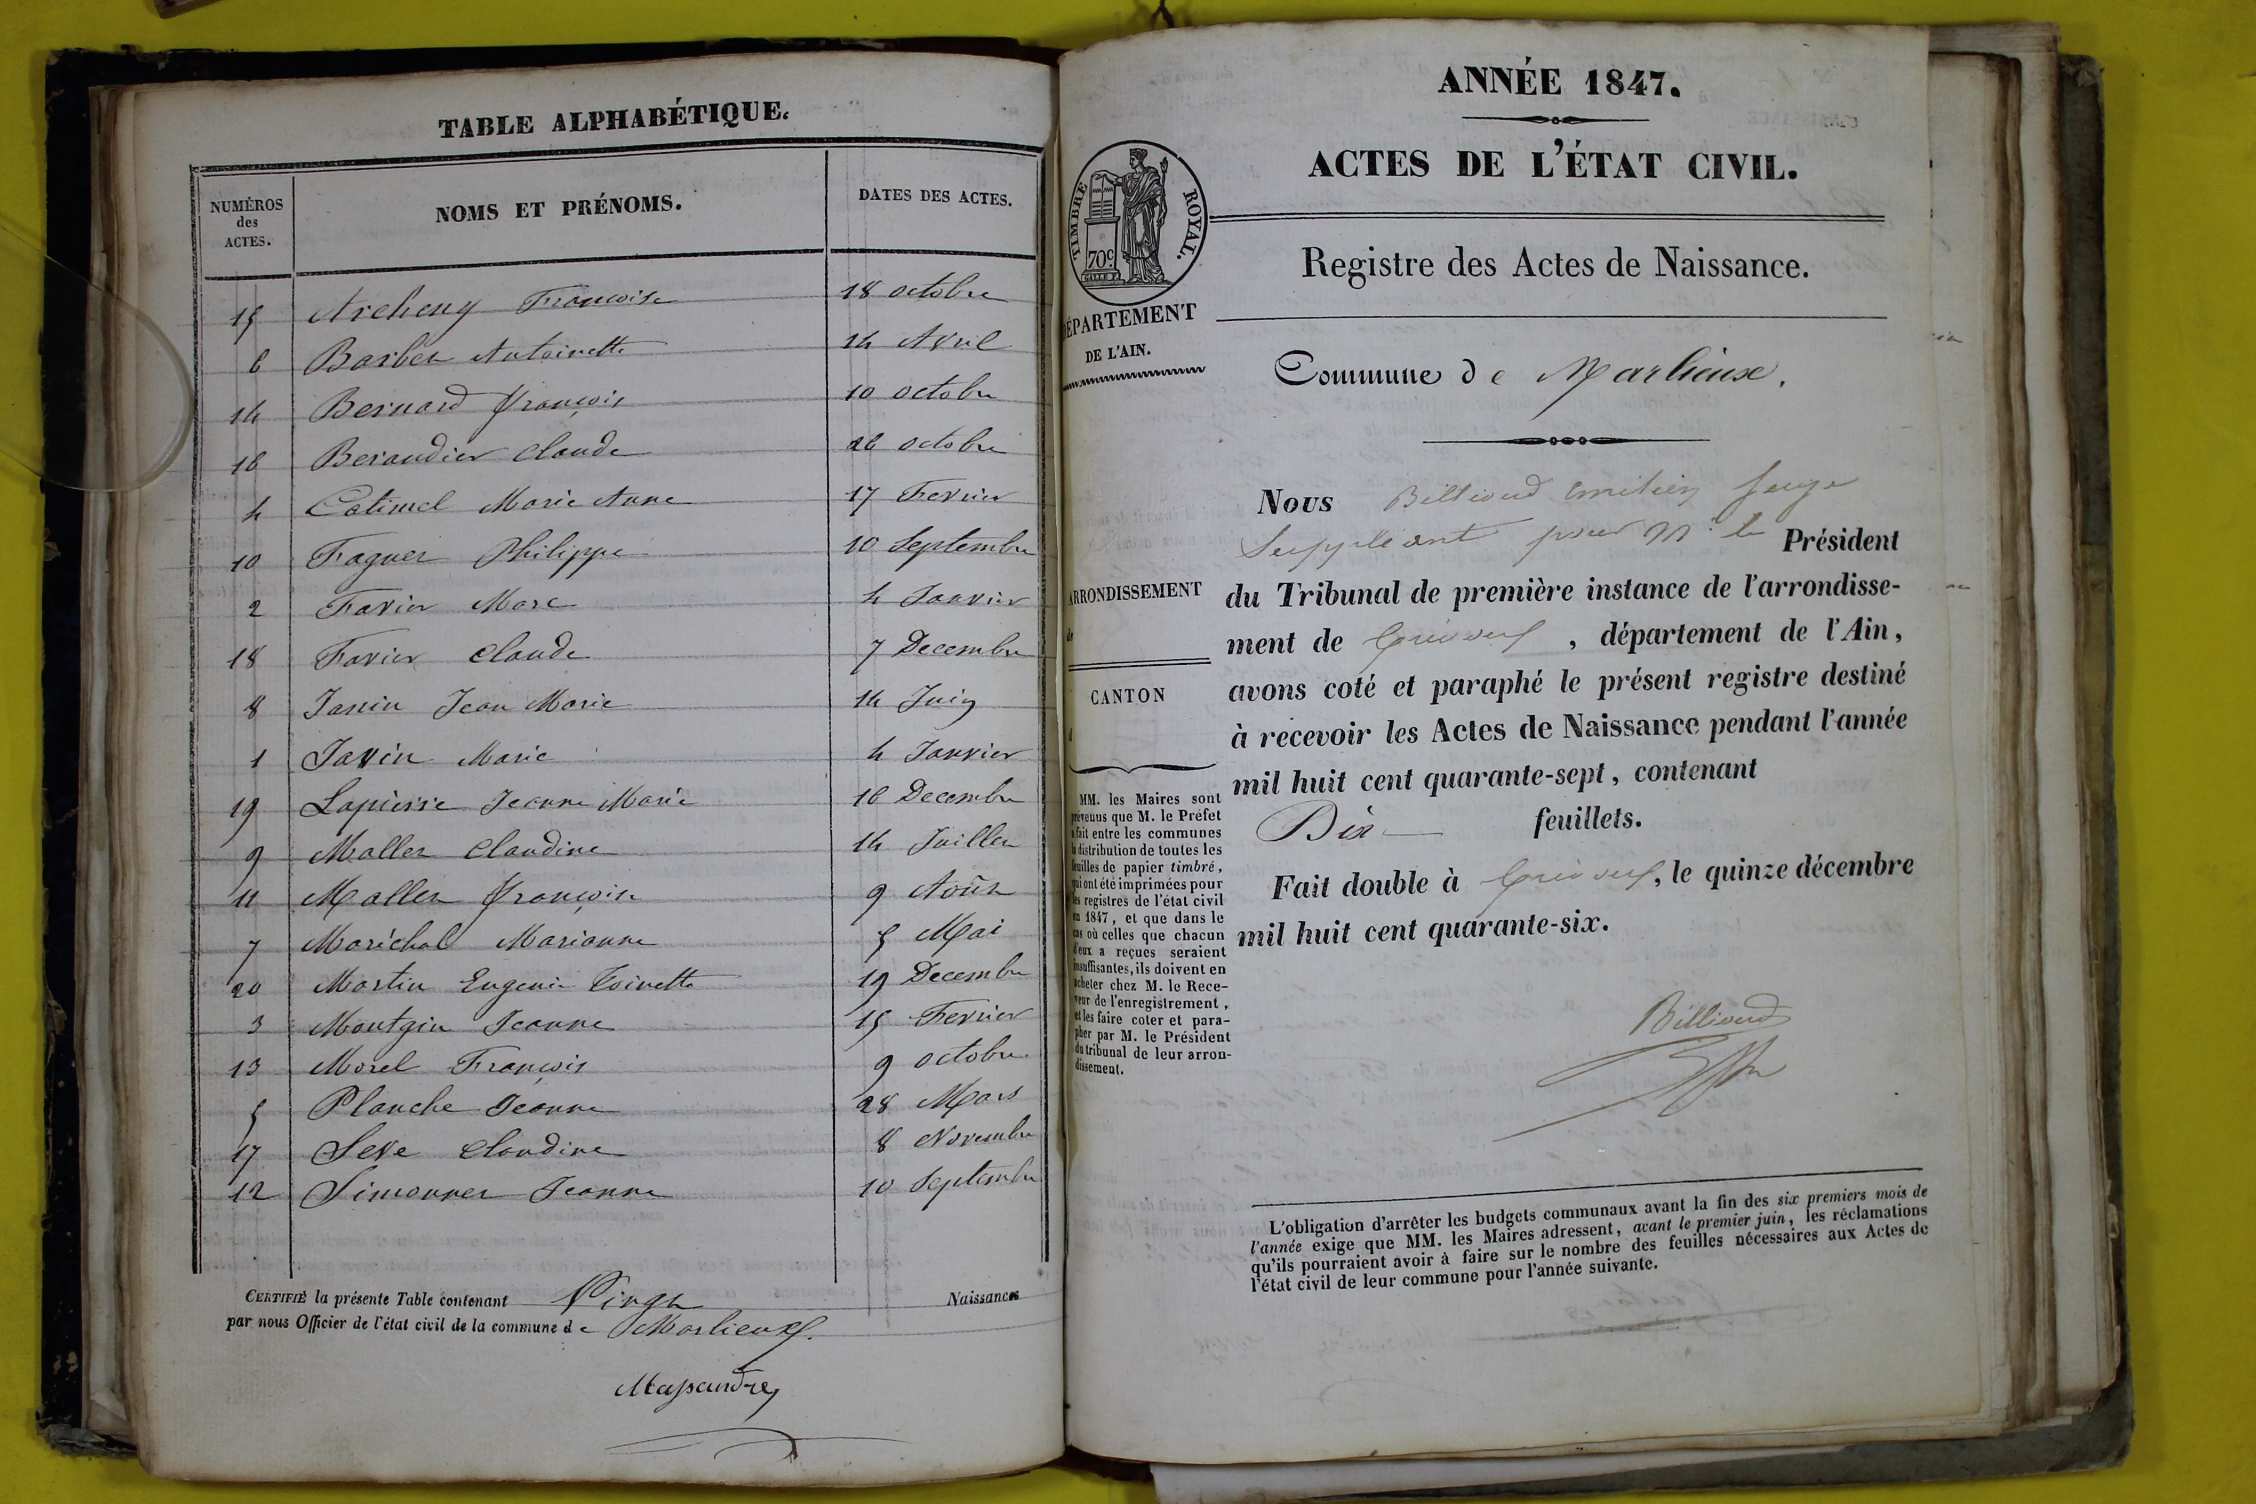 TABLE ALPHABÉTIQUE.
NUMÉROS des ACTES. NOMS ET PRÉNOMS. DATES DES ACTES.
15 Archeny Françoise 18 octobre
6 Barbet Antoinette 14 Avril
14 Bernard François 10 octobre
16 Beraudier Claude 26 octobre
4 Catimel Marie Anne 17 Fevrier
10 Faguet Philippe 10 Septembre
2 Favier Marc 4 Janvier
18 Favier Claude 7 Decembre
8 Janin Jean Marie 14 Juin
1 Javin Marie 4 Janvier
19 Lapierre Jeanne Marie 16 Decembre
9 Mallet Claudine 14 Juillet
11 Mallet Françoise 9 Août
7 Maréchal Marianne 5 Mai
20 Martin Eugenie Toinette 19 Decembre
3 Montgin Jeanne 15 Fevrier
13 Morel François 9 octobre
5 Planche Jeanne 28 Mars
17 Seve Claudine 8 Novembre
12 Simonnet Jeanne 10 Septembre
CERTIFIÉ la présente Table contenant Vingt Naissances
par nous Officier de l'état civil de la commune de Marlieux.
ANNÉE 1847.
ACTES DE L'ÉTAT CIVIL.
TIMBRE ROYAL.
70c
Registre des Actes de Naissance.
DÉPARTEMENT
DE L'AIN.
Commune de Marlieux.
Nous Billioud Emilien Juge
Suppléant pour M. le Président
ARRONDISSEMENT
de
du Tribunal de première instance de l'arrondisse-
ment de Trévoux, département de l'Ain,
avons coté et paraphé le présent registre destiné
à recevoir les Actes de Naissance pendant l'année
mil huit cent quarante-sept, contenant
Dix feuillets.
Fait double à Trévoux, le quinze décembre
mil huit cent quarante-six.
Billioud
CANTON
d
MM. les Maires sont
prévenus que M. le Préfet
a fait entre les communes
la distribution de toutes les
feuilles de papier timbré,
qui ont été imprimées pour
les registres de l'état civil
en 1847, et que dans le
cas où celles que chacun
d'eux a reçues seraient
insuffisantes, ils doivent en
acheter chez M. le Rece-
veur de l'enregistrement,
et les faire coter et para-
pher par M. le Président
du tribunal de leur arron-
dissement.
L'obligation d'arrêter les budgets communaux avant la fin des six premiers mois de
l'année exige que MM. les Maires adressent, avant le premier juin, les réclamations
qu'ils pourraient avoir à faire sur le nombre des feuilles nécessaires aux Actes de
l'état civil de leur commune pour l'année suivante.